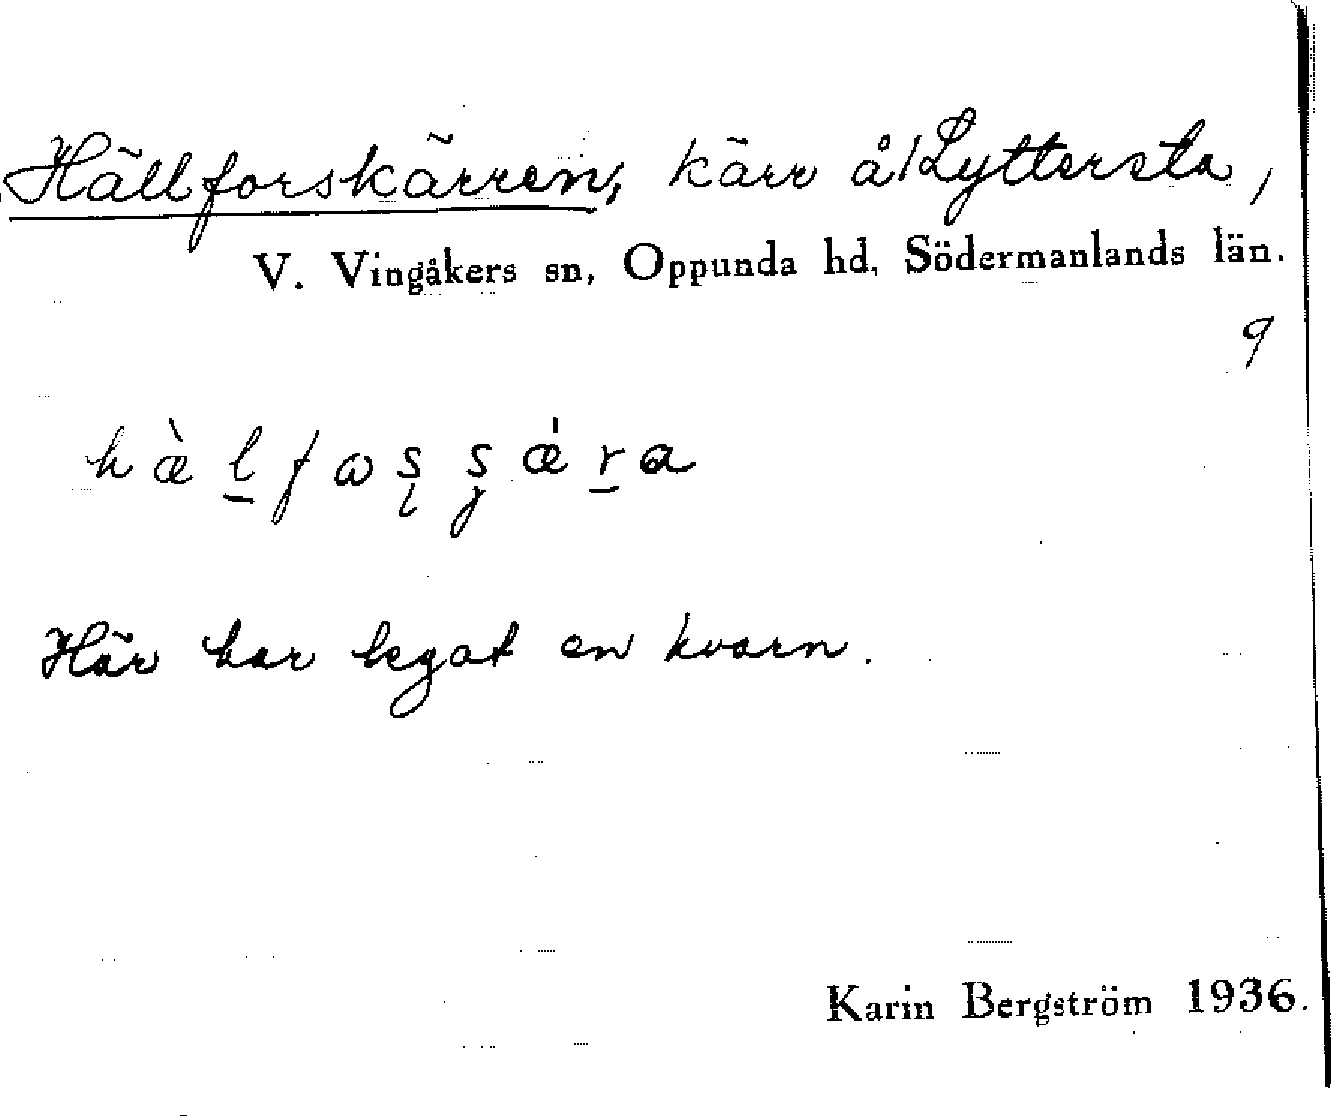 Hällforskärren, kärr å/Lyttersta,
V. Vingåkers sn, Oppunda hd, Södermanlands län.
9
Här har legat en kvarn.
Karin Bergström 1936.